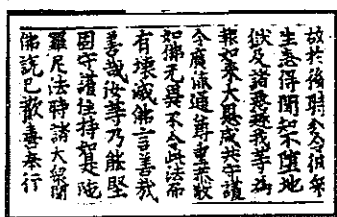 放於後時分令彼衆
生悉得聞知不墮地
獄及諸惡趣我等為
報如來大恩咸共守護
令廣流通尊重恭敬
如佛无異不令此法而
有壞滅佛言善哉
善哉汝等乃能堅
固守護住持如是陁
羅尼法時諸大衆聞
佛說已歡喜奉行